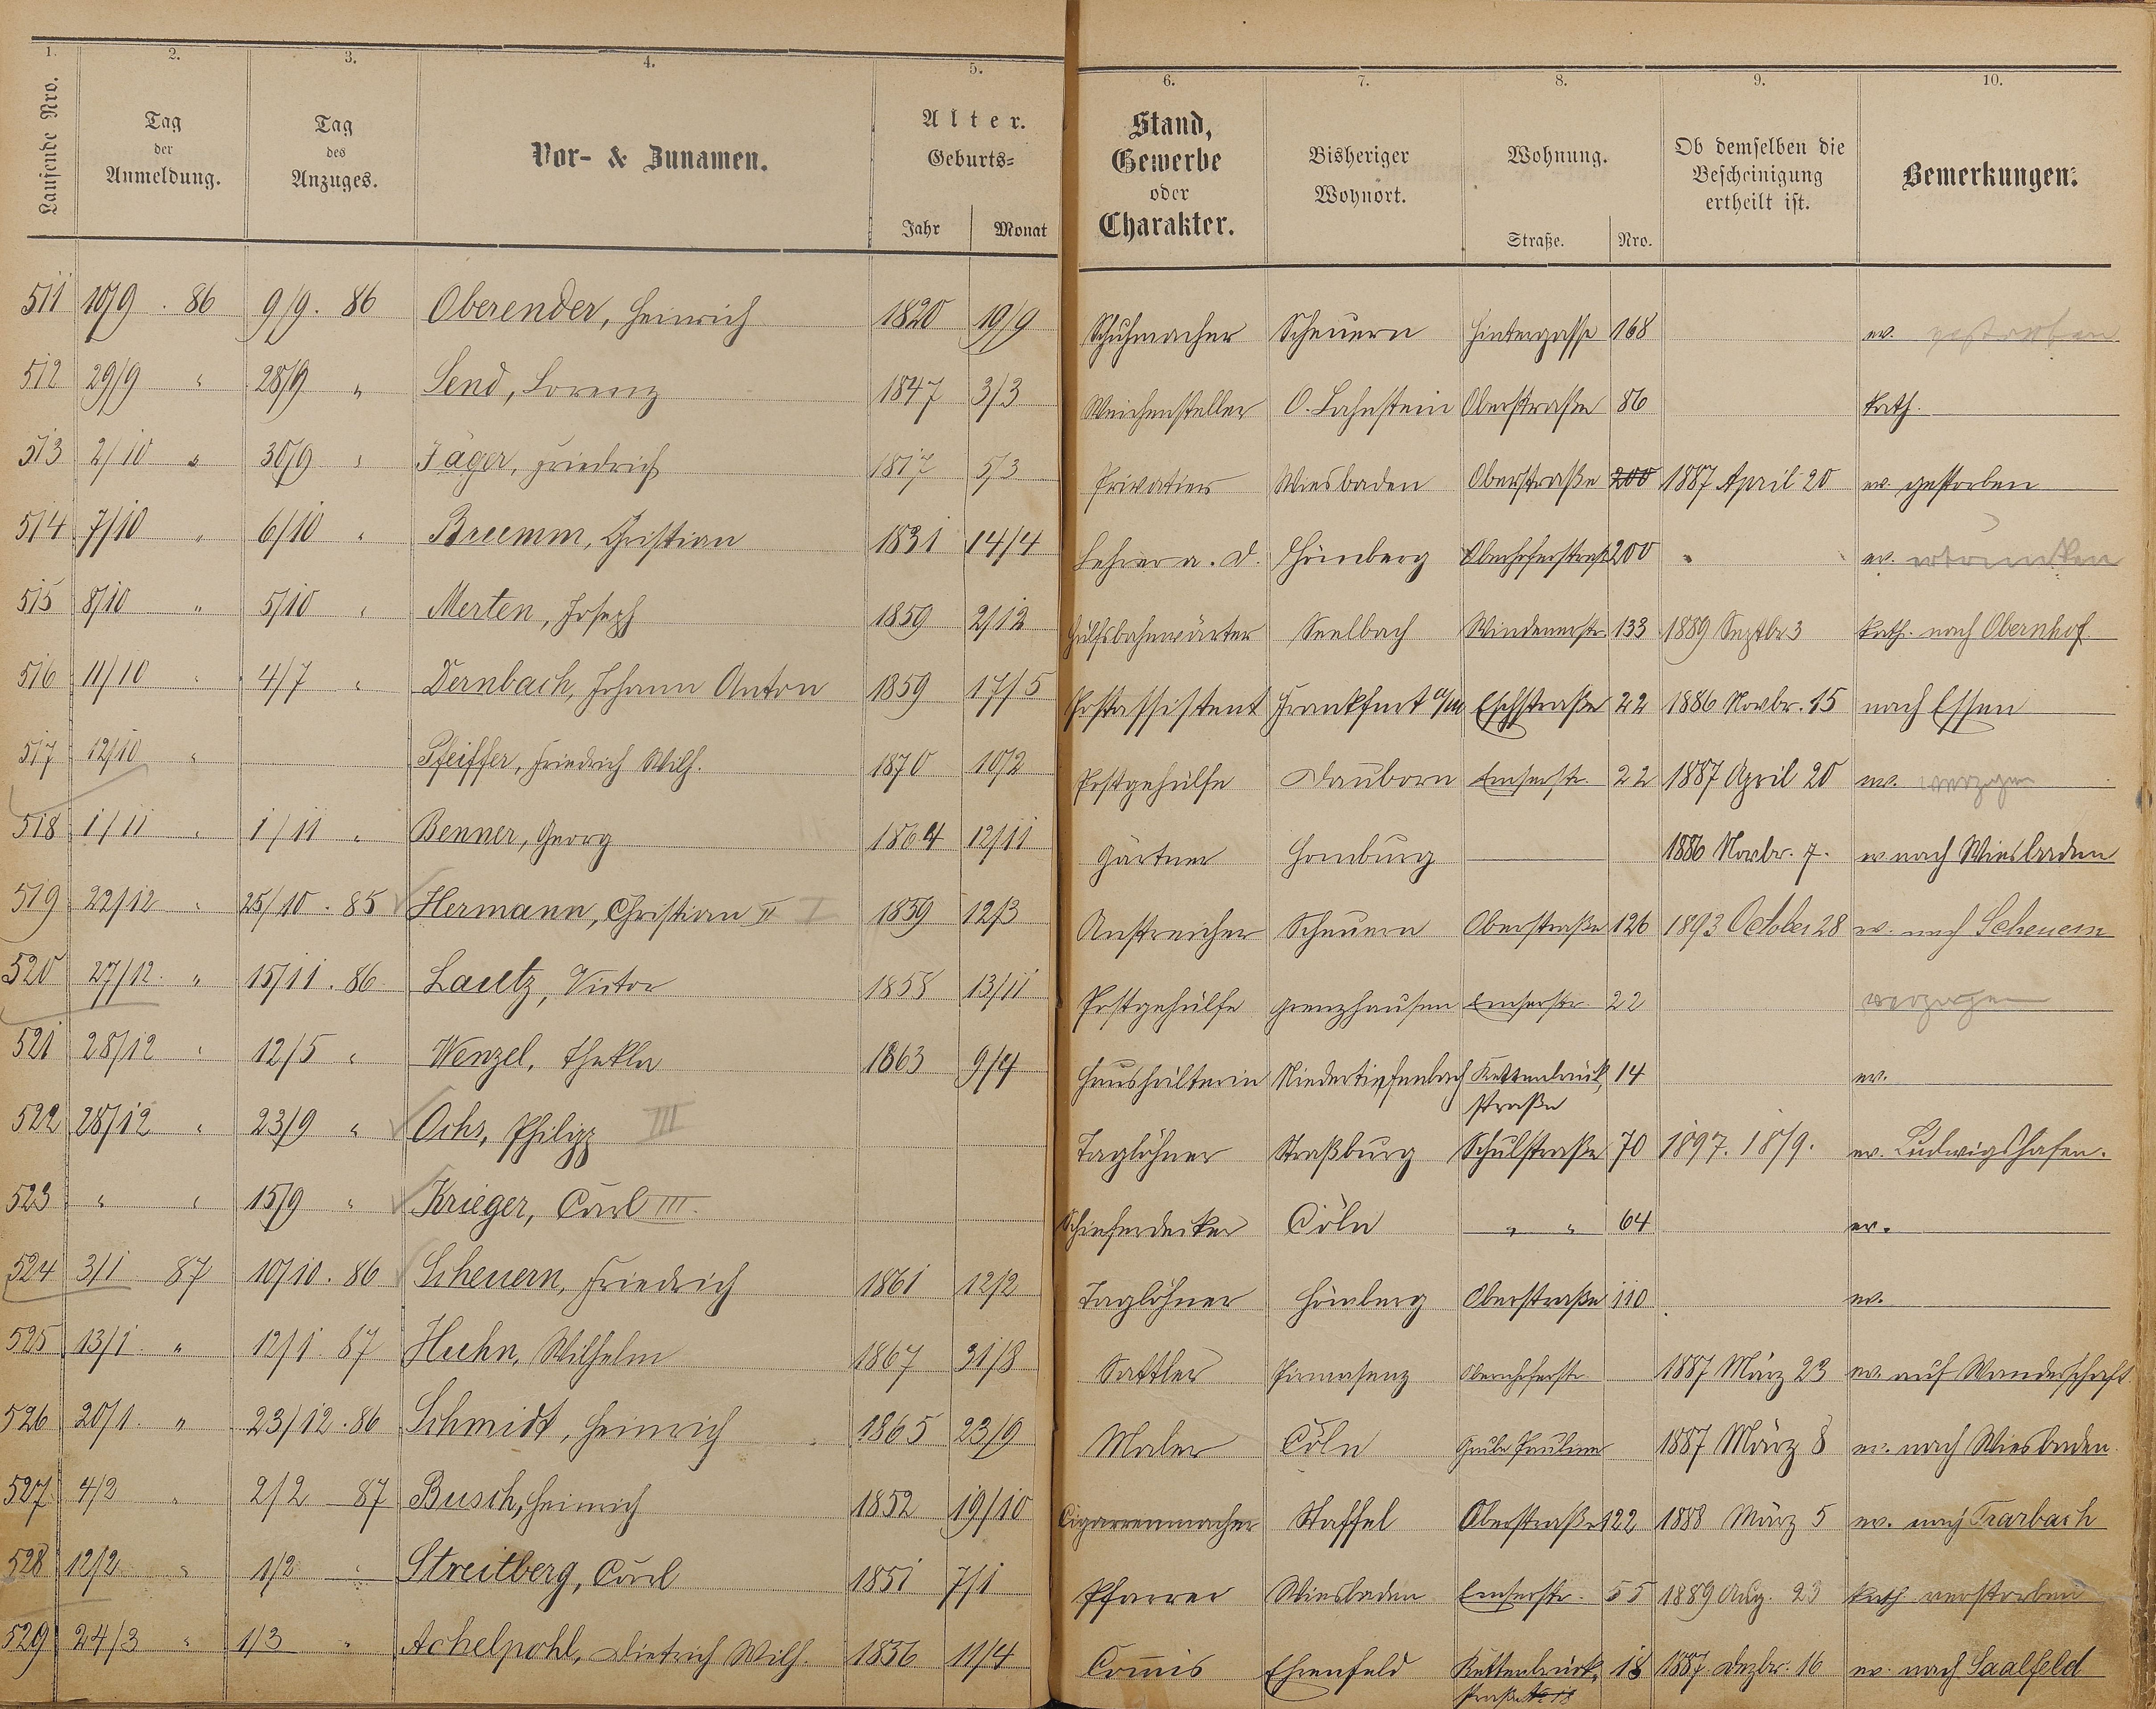 1. 2. 3. 4. 5. 6. 7. 8. 9. 10.
Laufende Nro. | Tag der Anmeldung. | Tag des Anzuges. | Vor- & Zunamen. | Alter. Geburts= Jahr | Monat | Stand, Gewerbe oder Charakter. | Bisheriger Wohnort. | Wohnung. Straße. | Nro. | Ob demselben die Bescheinigung ertheilt ist. | Bemerkungen.
511 10/9 . 86 9/9. 86 Oberender, Heinrich 1820 19/9 Schuhmacher Scheuern Hintergasse 168 ev. gestorben
512 29/9 " 28/9 " Send, Lorenz 1847 3/3 Weichensteller O. Lahnstein Oberstraße 86 kath.
513 2/10 " 30/9 " Jäger, Friedrich 1817 5/3 Privatier Wiesbaden Oberstraße 200 1887 April 20 ev. gestorben
514 7/10 " 6/10 " Breemm, Christian 1831 14/4 Lehrer a. D. Hömberg Obernhoferstraß 200 " ev. ertrunken
515 8/10 " 5/10 " Merten, Joseph 1859 2/12 Hülfsbahnwärter Seelbach Windenerstr. 133 1889 Septbr 3 kath. nach Obernhof
516 11/10 " 4/7 " Dernbach, Johann Anton 1859 17/5 Postassistent Frankfurt a/M Eschstraße 22 1886 Novbr. 15 nach Essen
517 12/10 " Pfeiffer, Friedrich Wilh. 1870 10/2 Postgehülfe Dauborn Emserstr. 22 1887 April 20 ev. verzogen
518 1/11 " 1/11 " Benner, Georg 1864 12/11 Gärtner Homburg 1886 Novbr. 7. ev nach Wiesbaden
519 22/12 " 25/10 . 85 Hermann, Christian II I 1859 12/3 Anstreicher Scheuern Oberstraße 126 1893 October 28 ev. nach Scheuern
520 27/12. " 15/11 . 86 Lautz, Victor 1858 13/11 Postgehülfe Grenzhausen Emserstr. 22 verzogen
521 28/12 " 12/5 " Wenzel, Thekla 1863 9/4 Haushälterin Niedertiefenbach Kettenbrück, 14 ev.
straße
522 28/12 " 23/9 " Ochs, Philipp III Taglöhner Straßburg Schulstraße 70 1897. 18/9. ev. Ludwigshafen.
523 " " 15/9 " Krieger, Carl III. Schieferdecker Cöln " " 64 ev.
524 3/1 87 10/10. 86 Scheuern, Friedrich 1861 12/2 Taglöhner Hömberg Oberstraße 110 ev.
525 13/1. " 12/1. 87 Huhn, Wilhelm 1867 31/8 Sattler Pirmasenz Obernhoferstr. 1887 März 23 ev. auf Wanderschaft
526 20/1. " 23/12 .86 Schmidt, Heinrich 1865 23/9 Maler Cöln Grube Pauline 1887 März 8 ev. nach Wiesbaden
527 4/2 " 2/2 87 Busch, Heinrich 1852 19/10 Cigarrenmacher Staffel Oberstraße 122 1888 März 5 ev. nach Trarbach
528 12/2 " 1/2 " Streitberg, Carl 1851 7/1 Pfarrer Wiesbaden Emserstr. 55 1889 Aug. 23 kath verstorben
529 24/3 " 1/3 " Achelpohl, Dietrich Wilh. 1856 11/4 Com̅is Ehrenfeld Kettenbrück, 18 1887. Dezbr. 16 ev. nach Saalfeld
straße No 18